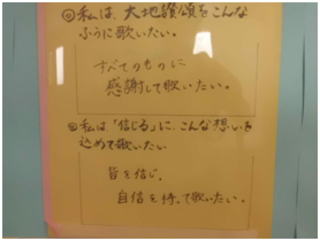 ◎私は、大地讃頌をこんな
ふうに歌いたい。
すべてのものに
感謝して歌いたい。
◎私は、「信じる」に、こんな想いを
込めて歌いたい
皆を信じ、
自信を持って歌いたい。